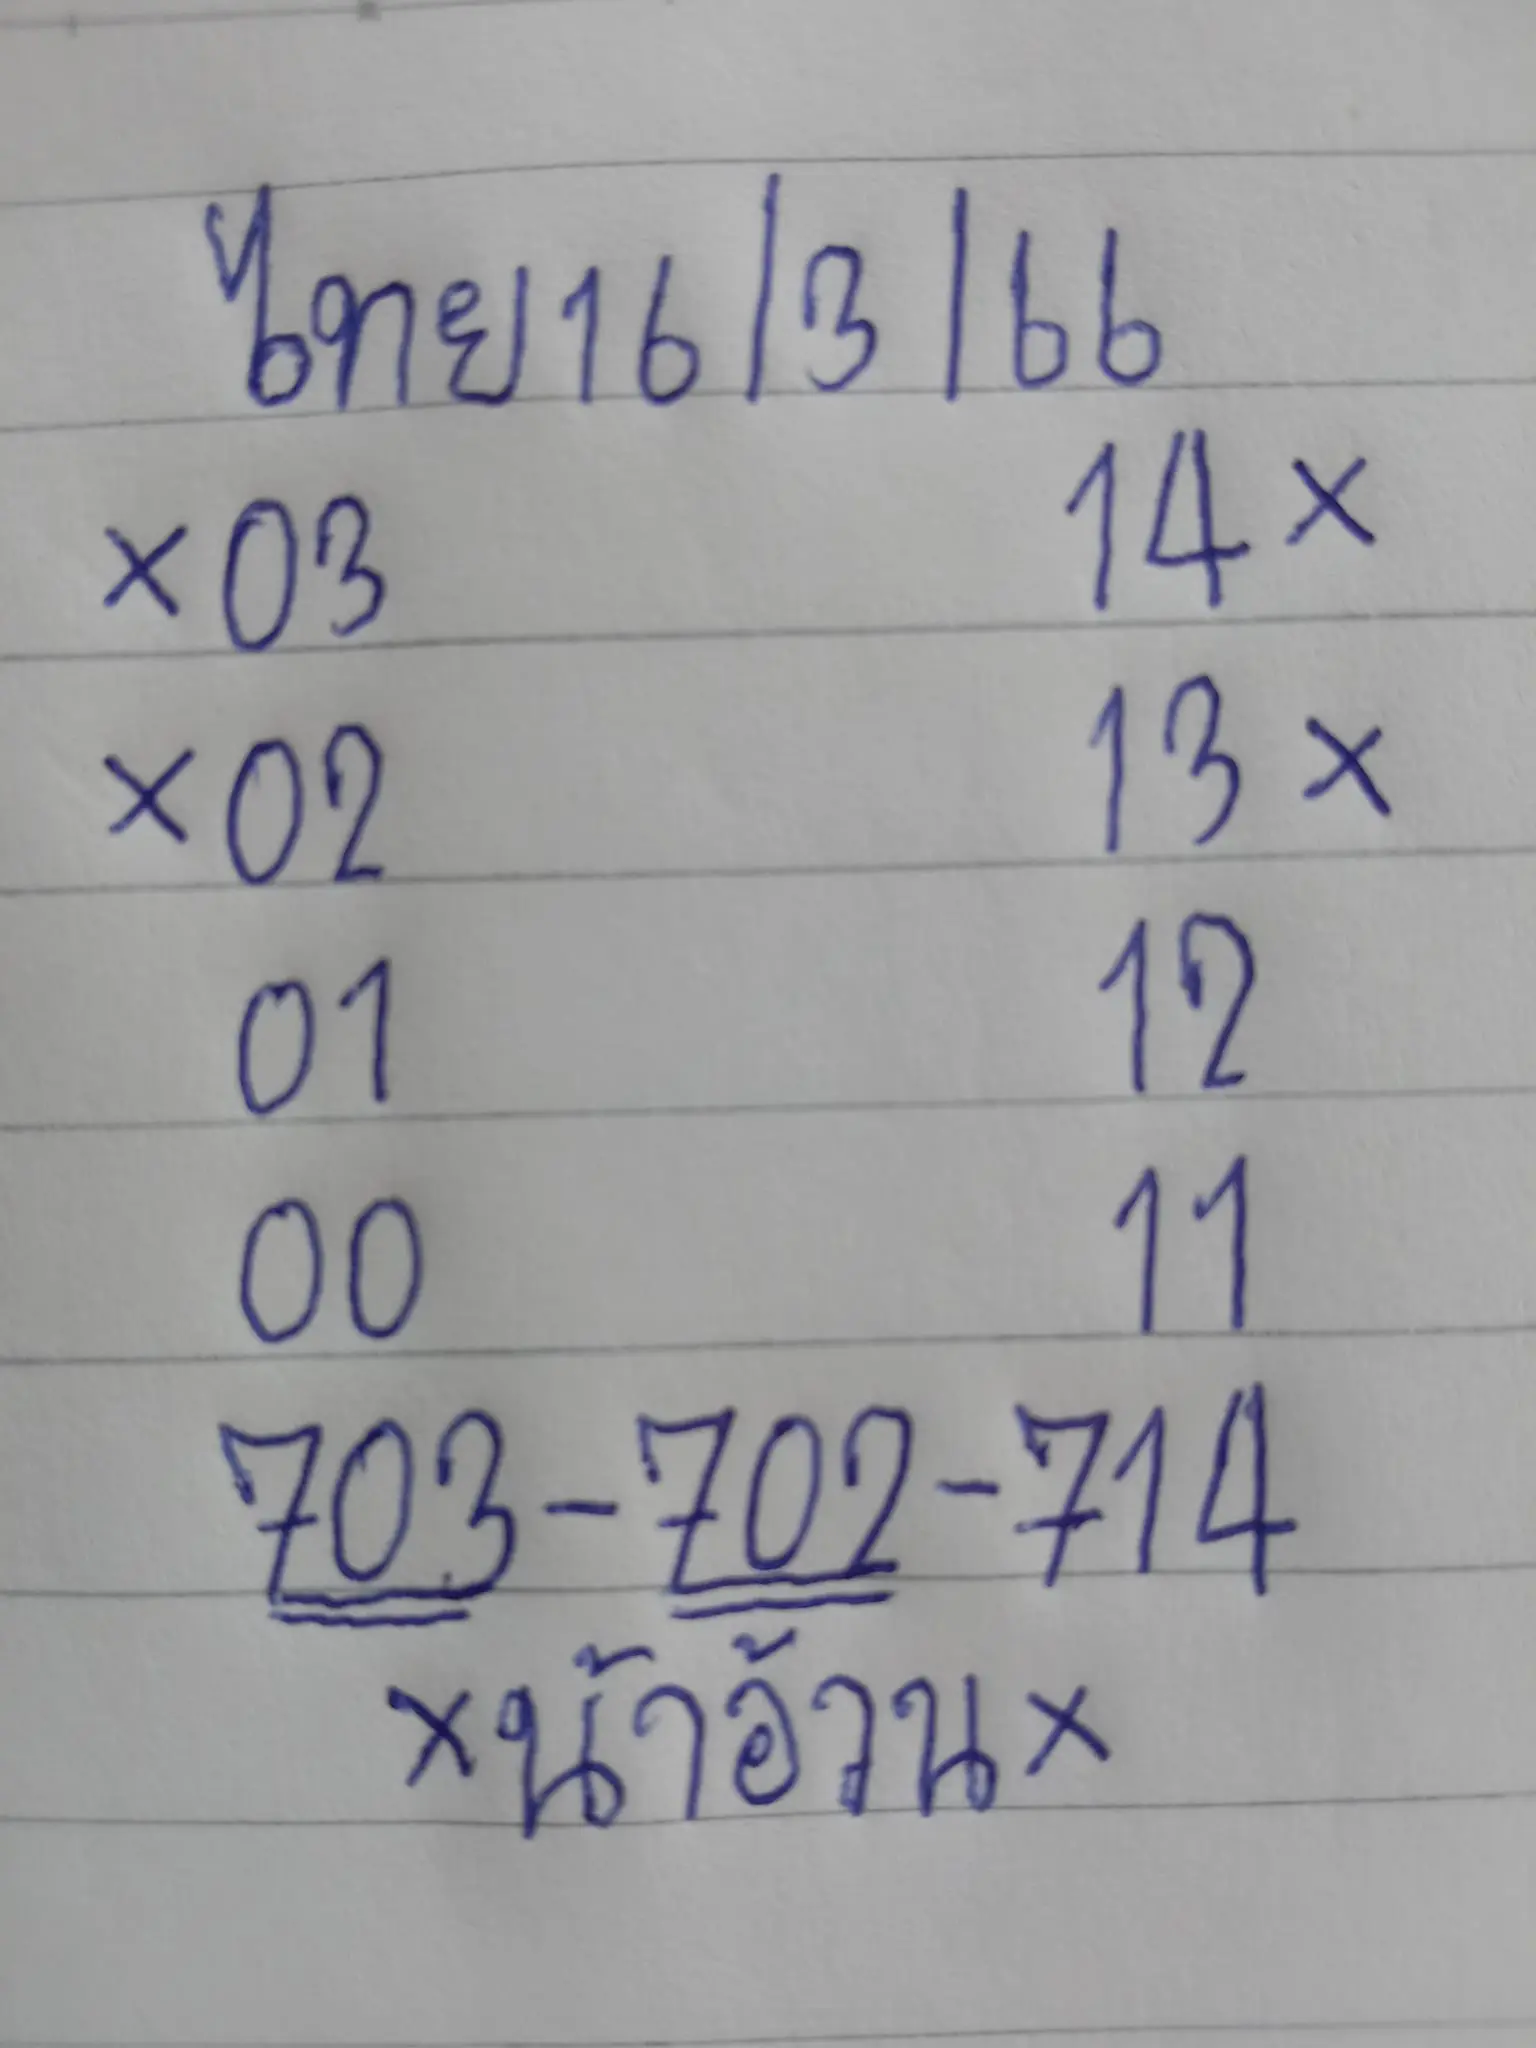 ไทย 16/3/66
×03 14×
×02 13×
01 12
00 11
703-702-714
×น้าอ้วน×